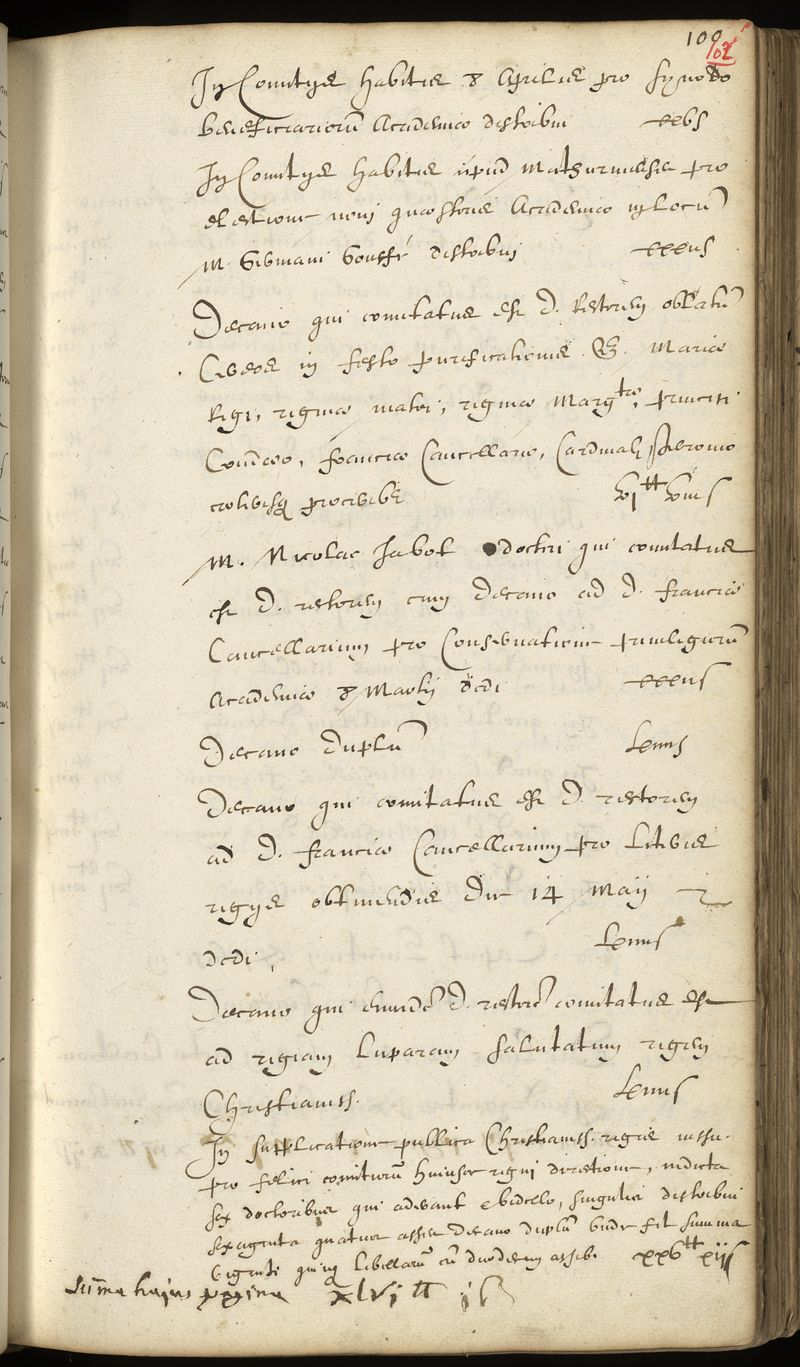 109
102
In Comitijs habitis 8 Aprilis pro synodo
beneficiariorũ Academiæ distribui xxvs
In Comitijs habitis apud Mathurinenses pro
electione novi quæstoris Academiæ in locũ
M. Germani Goussé distribui xxxiis
Decano qui comitatus est D. Rectorem oblatũ
Cereos in festo purificationis B. Mariæ
Regi, reginæ matri, reginæ Margtæ, principi
Condæo, Franciæ Cancellario, Cardinali
cæterisq proceribus vi tt viiis
M. Nicolao Jabot doctori qui comitatus
est D. rectorem cum Decano ad D. Franciæ
Cancellarium pro Conservatione privilegiorũ
Academiæ 8 Martij dedi xxxiis
Decano duplũ lxiiiis
Decano qui comitatus est D. rectorem
ad D. Franciæ Cancellarium pro literis
regijs obtinendis die 14 Maij
dedi, lxiiiis
Decano qui eundẽ D. rectorẽ comitatus est
ad regiam Luparam salutatum regem
Christianiss. lxiiiis
In supplicatione publica Christianiss. regis iussu
pro felici comitiorũ huiusce regni directione, indicta
sex doctoribus qui aderant e bidello, singulis distribui
sexaginta quatuor asses decano duplũ unde fit summa
viginti quinq libellarũ cũ duodecim assib. xxv tt xijs
Suma huius pagina xlvi tt is